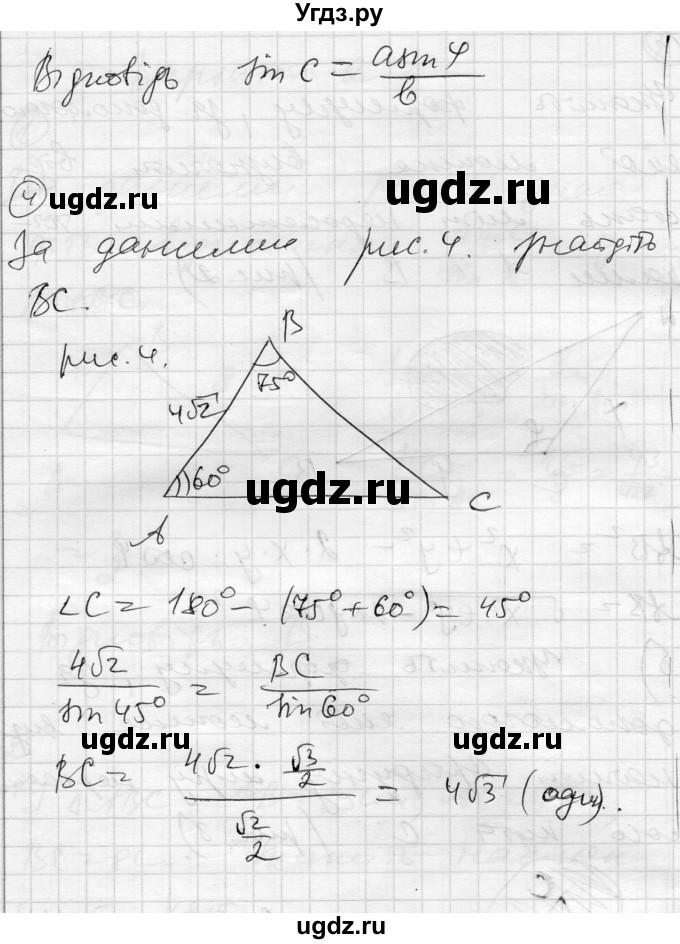 Угдз.ру
Відповідь sin C = a sin φ / b
ugdz.ru
4 ugdz.ru
За даними рис. 4. знайдіть
BC.
рис. 4.
B
75°
4√2
60°
ugdz.ru
A
C
∠C = 180° - (75° + 60°) = 45°
4√2 / sin 45° = BC / sin 60°
ugdz.ru ugdz.ru
BC = (4√2 · √3/2) / (√2/2) = 4√3 (один).
ugdz.ru